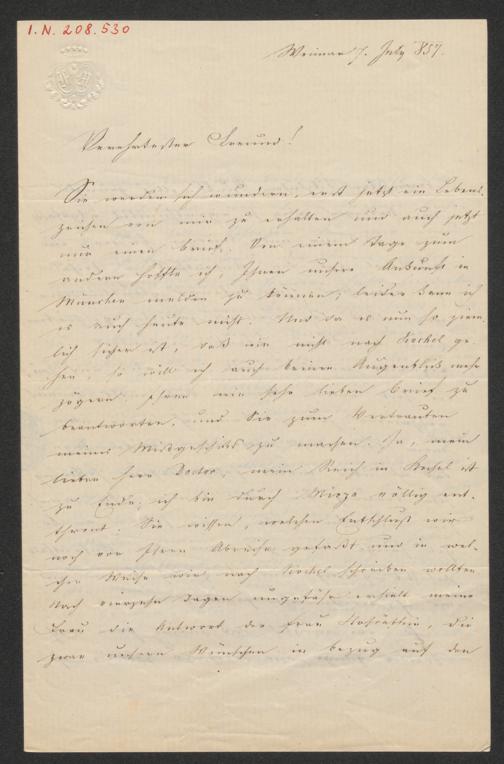 I.N. 208.530
Weimar 7. July 857.
Verehrtester Freund!
Sie werden sich wundern, erst jetzt ein Lebens-
zeichen von mir zu erhalten und auch jetzt
nur einen Brief. Von einem Tage zum
andern hoffte ich, Ihnen unsere Ankunft in
München melden zu können, leider kann ich
es auch heute nicht. Und da es nun so ziem-
lich sicher ist, daß wir nicht nach Kochel ge-
hen, so will ich auch keinen Augenblick mehr
zögern, Ihren mir sehr lieben Brief zu
beantworten, und Sie zum Vertrauten
meines Mißgeschicks zu machen. Ja, mein
lieber Herr Doctor, mein Reich in Kochel ist
zu Ende, ich bin durch Mirza völlig ent-
thront. Sie wissen, welchen Entschluß wir
noch vor Ihrer Abreise gefaßt und in wel-
cher Weise wir nach Kochel schreiben wollten.
Nach vierzehn Tagen ungefähr erhielt meine
Frau die Antwort der Frau, die
zwar unsern Wünschen in bezug auf den